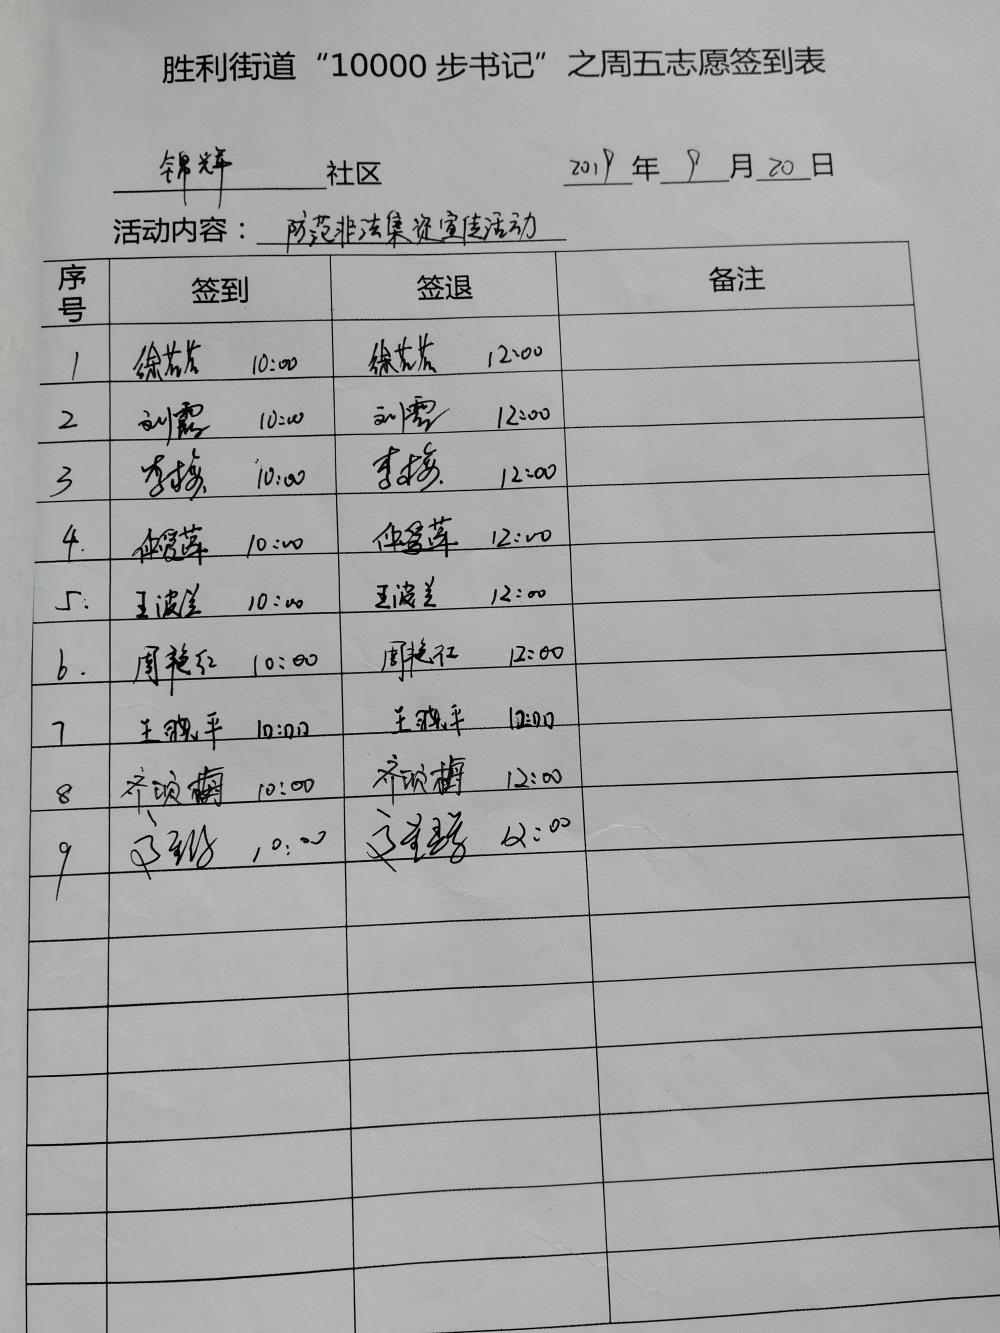 胜利街道“10000步书记”之周五志愿签到表
锦辉 社区 2019年9月20日
活动内容：防范非法集资宣传活动
序号 签到 签退 备注
1 徐若若 10:00 徐若若 12:00
2 刘霞 10:00 刘霞 12:00
3 李梅 10:00 李梅 12:00
4. 仲爱莲 10:00 仲爱莲 12:00
5. 王波兰 10:00 王波兰 12:00
6. 周艳红 10:00 周艳红 12:00
7 王晓平 10:00 王晓平 12:00
8 齐顶梅 10:00 齐顶梅 12:00
9 10:00 12:00